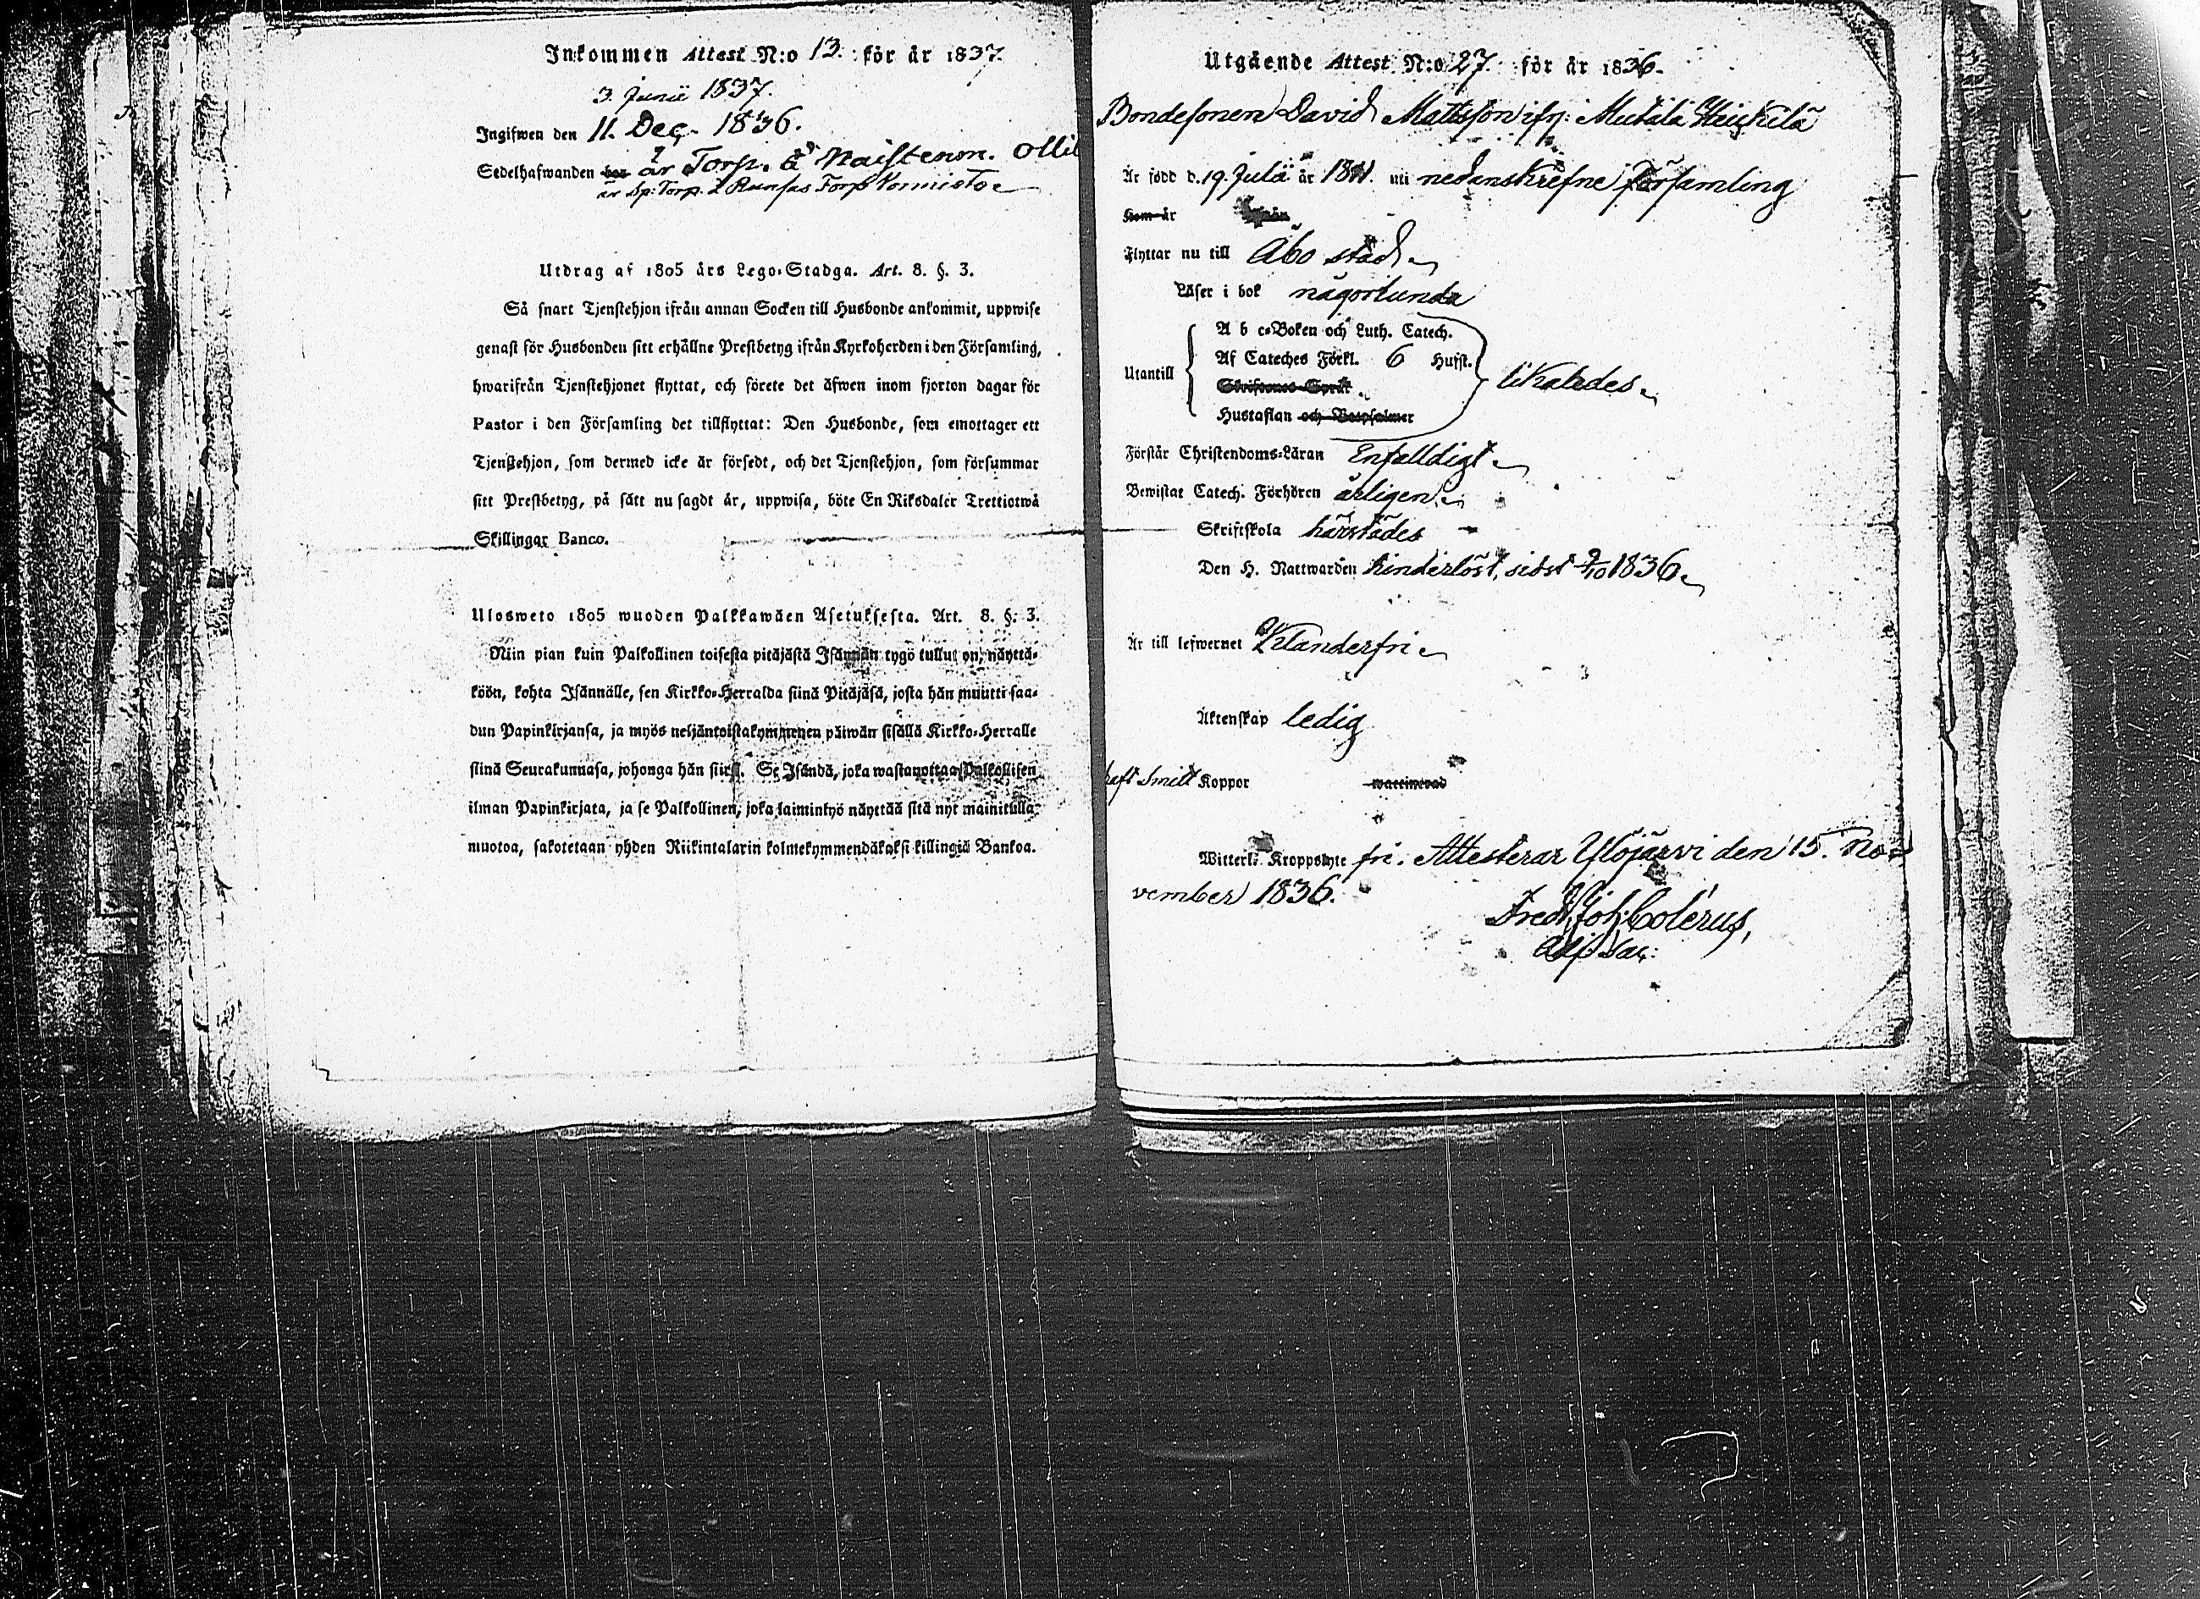 Inkommen Attest N:o 13. för år 1837.
3. Junii 1837.
Ingifwen den 11. Dec. 1836.
Sedelhafwanden är Torp. å Naistenm. Olli
är Sp: Torp. å Runsas Torp Kornisto
Utdrag af 1805 års Lego-Stadga. Art. 8. §. 3.
Så snart Tjenstehjon ifrån annan Socken till Husbonde ankommit, uppwise
genast för Husbonden sitt erhållne Prestbetyg ifrån Kyrkoherden i den Församling,
hwarifrån Tjenstehjonet flyttat, och förete det äfwen inom fjorton dagar för
Pastor i den Församling det tillflyttat: Den Husbonde, som emottager ett
Tjenstehjon, som dermed icke är försedt, och det Tjenstehjon, som försummar
sitt Prestbetyg, på sätt nu sagdt är, uppwisa, böte En Riksdaler Trettiotwå
Skillingar Banco.
Ulosweto 1805 wuoden Palkkawäen Asetuksesta. Art. 8. §. 3.
Niin pian kuin Palkollinen toisesta pitäjästä Isännän tygö tullut on, näyttä-
köön, kohta Isännälle, sen Kirkko-Herralda siinä Pitäjäsä, josta hän muutti saa-
dun Papinkirjansa, ja myös neljäntoistakymmenen päiwän sisällä Kirkko-Herralle
siinä Seurakunnasa, johonga hän siirsi. Se Isändä, joka wastanottaa Palkollisen
ilman Papinkirjata, ja se Palkollinen, joka laiminlyö näyttää sitä nyt mainitulla
muotoa, sakotetaan yhden Riikintalarin kolmekymmendäkaksi killingiä Bankoa.
Utgående Attest N:o 27. för år 1836.
Bondesonen David Mattsson ifr: Mutala Heickilä
Är född d. 19. Julii år 1811. uti nedanskrefne Församling
Kom år
Flyttar nu till Åbo stad
Läser i bok någorlunda
A b c-Boken och Luth. Catech.
Af Cateches Förkl. 6 Hufst.
Utantill likaledes
Skriftenes Språk
Hustaflan och Botpsalmer
Förstår Christendoms-Läran Enfalldigt
Bewistat Catech. Förhören årligen
Skriftskola härstädes
Den H. Nattwarden hinderlöst, sidst 9/10 1836
Är till lefwernet Klanderfri
Äktenskap ledig
haft Smitt Koppor waccinerad
Witterl: Kroppslyte fri. Attesterar Ylöjärvi den 15. No-
vember 1836.
Fredr. Joh: Colerus,
Adj: Sac: